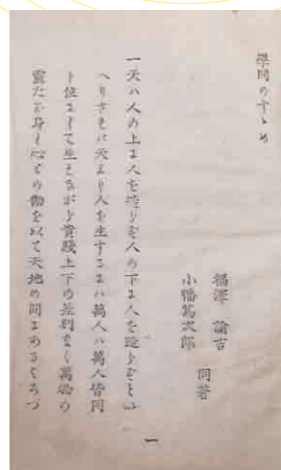 學問のすゝめ
福澤 諭吉
小幡篤次郎
同著
一天ハ人の上ま人を造らず人の下ま人を造らずとい
へりされバ天より人を生ずるまハ萬人ハ萬人皆同
ト位まして生きながら貴賤上下の差別まく萬物の
靈たる身と心との働を以て天地の間まあるよろづ
一